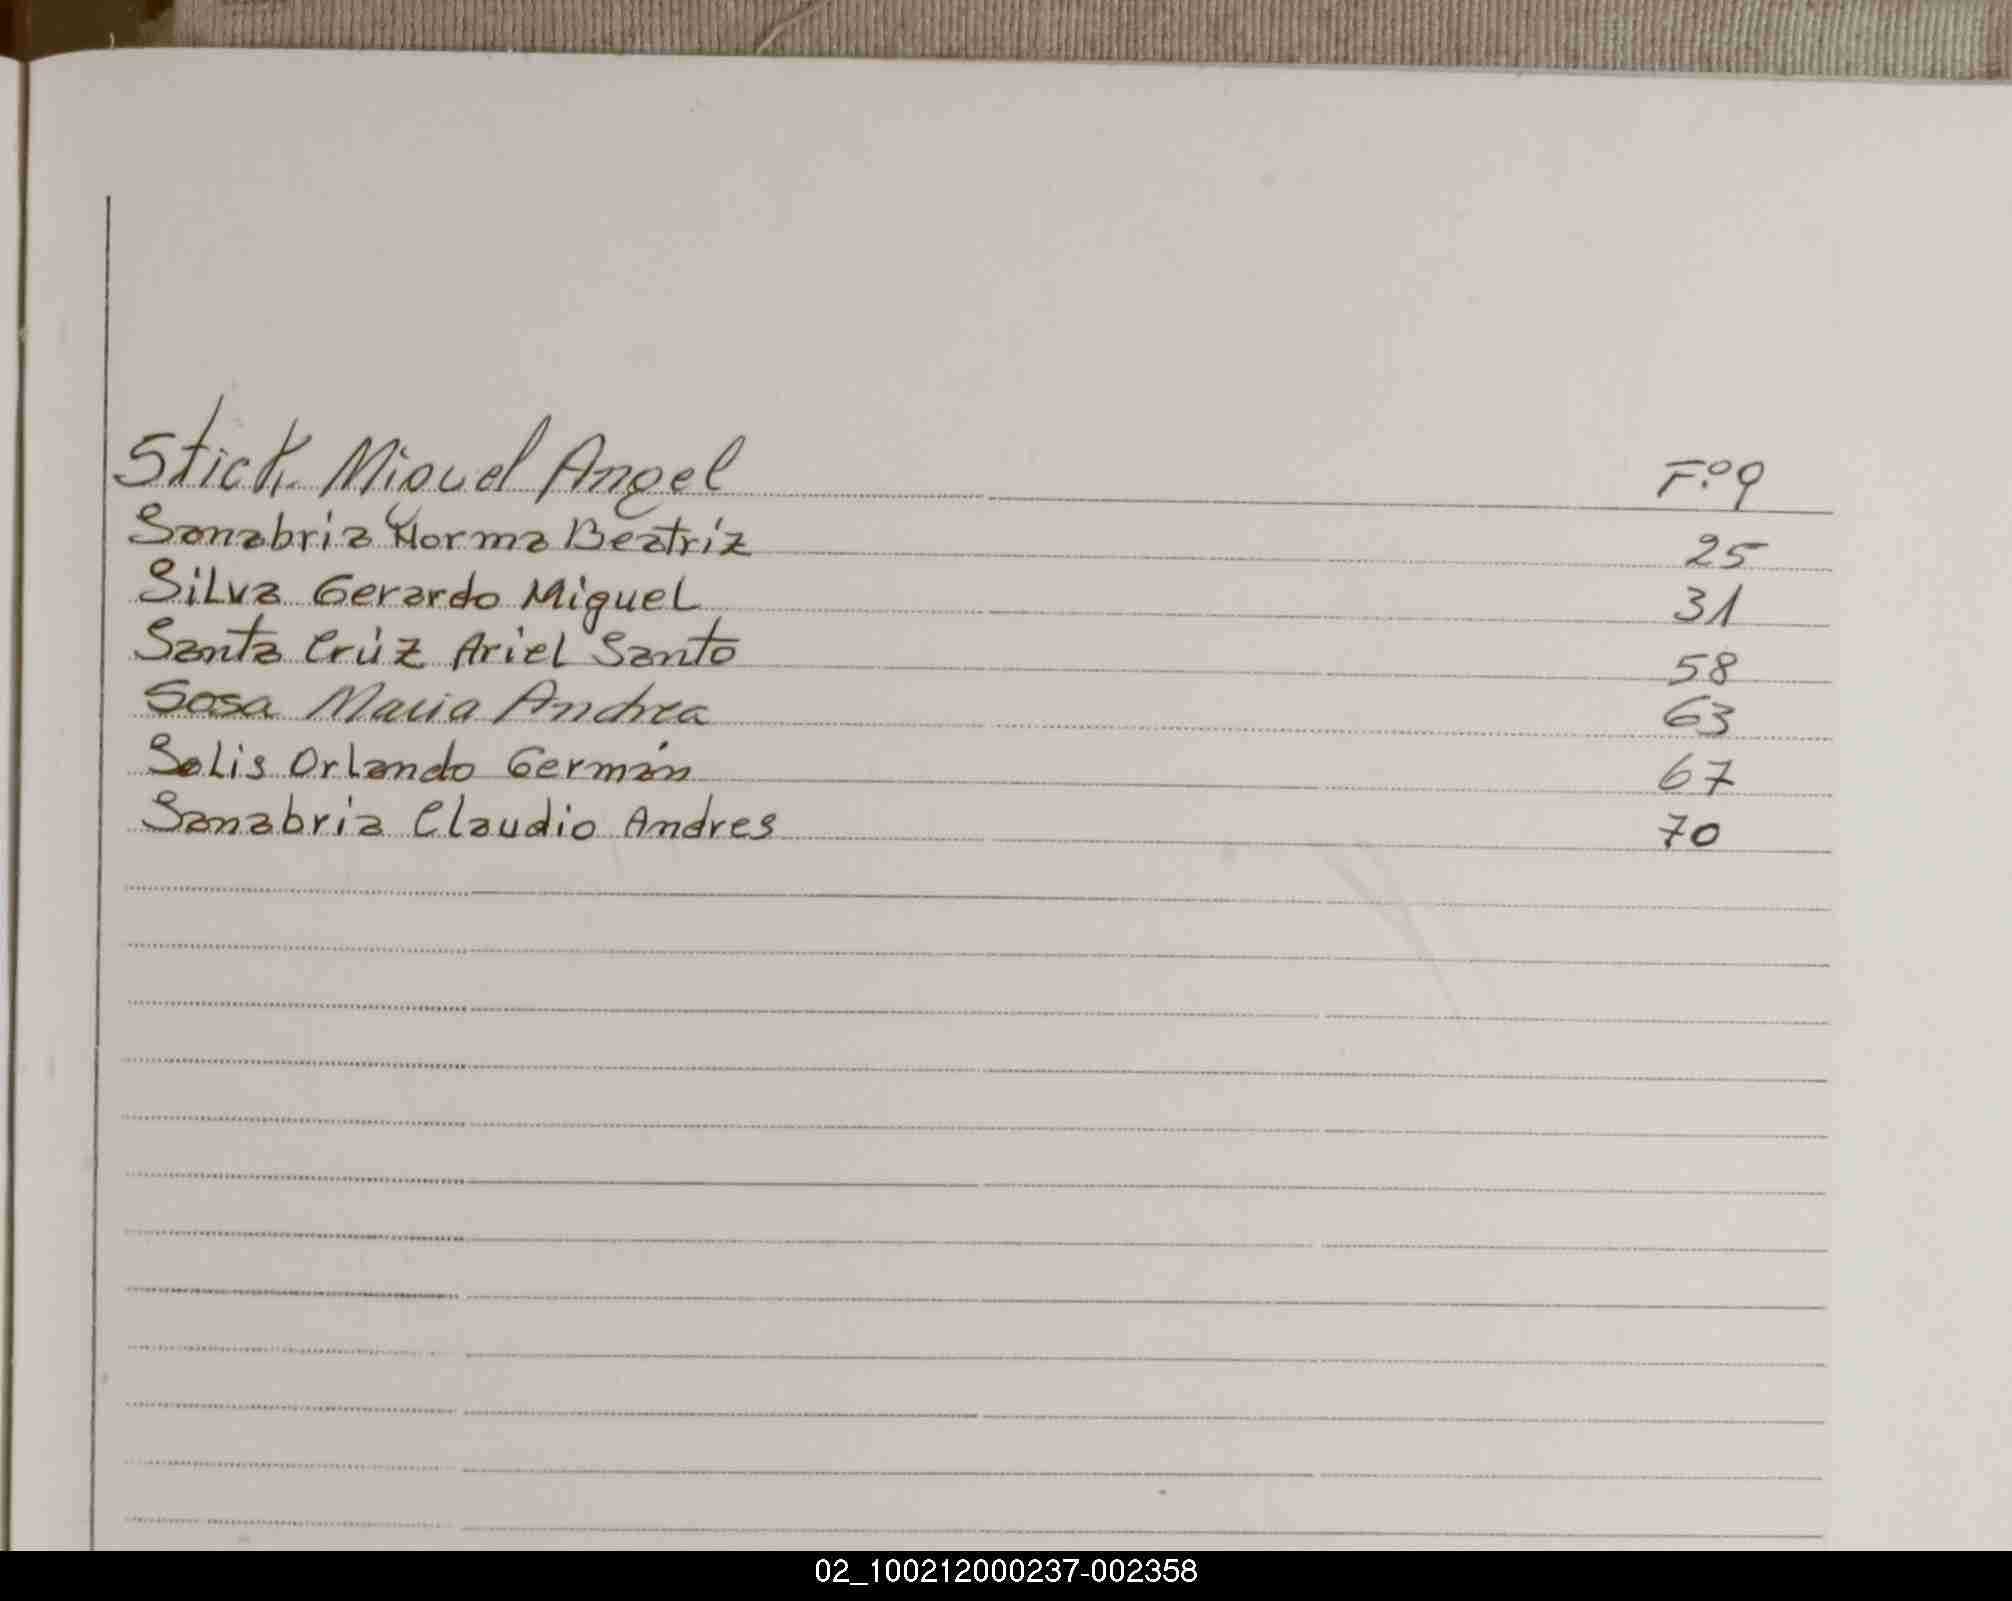 Stick Miguel Angel F.º 9
Sanabria Norma Beatriz 25
Silva Gerardo Miguel 31
Santa Crúz Ariel Santo 58
Sosa Maria Andrea 63
Solis Orlando Germán 67
Sanabria Claudio Andres 70
02_100212000237-002358